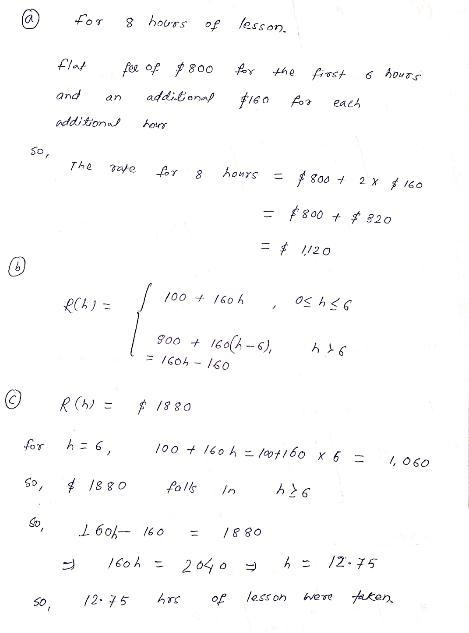 (a) for 8 hours of lesson.
flat fee of $800 for the first 6 hours
and an additional $160 for each
additional hour
so,
The rate for 8 hours = $800 + 2 x $160
= $800 + $320
= $ 1,120
(b)
R(h) = { 100 + 160h , 0 ≤ h ≤ 6
800 + 160(h-6), h ≥ 6
= 160h - 160
(c) R(h) = $ 1880
for h = 6, 100 + 160h = 100+160 x 6 = 1,060
so, $ 1880 falls in h ≥ 6
so, 160h - 160 = 1880
⇒ 160h = 2040 ⇒ h = 12.75
so, 12.75 hrs of lesson were taken.